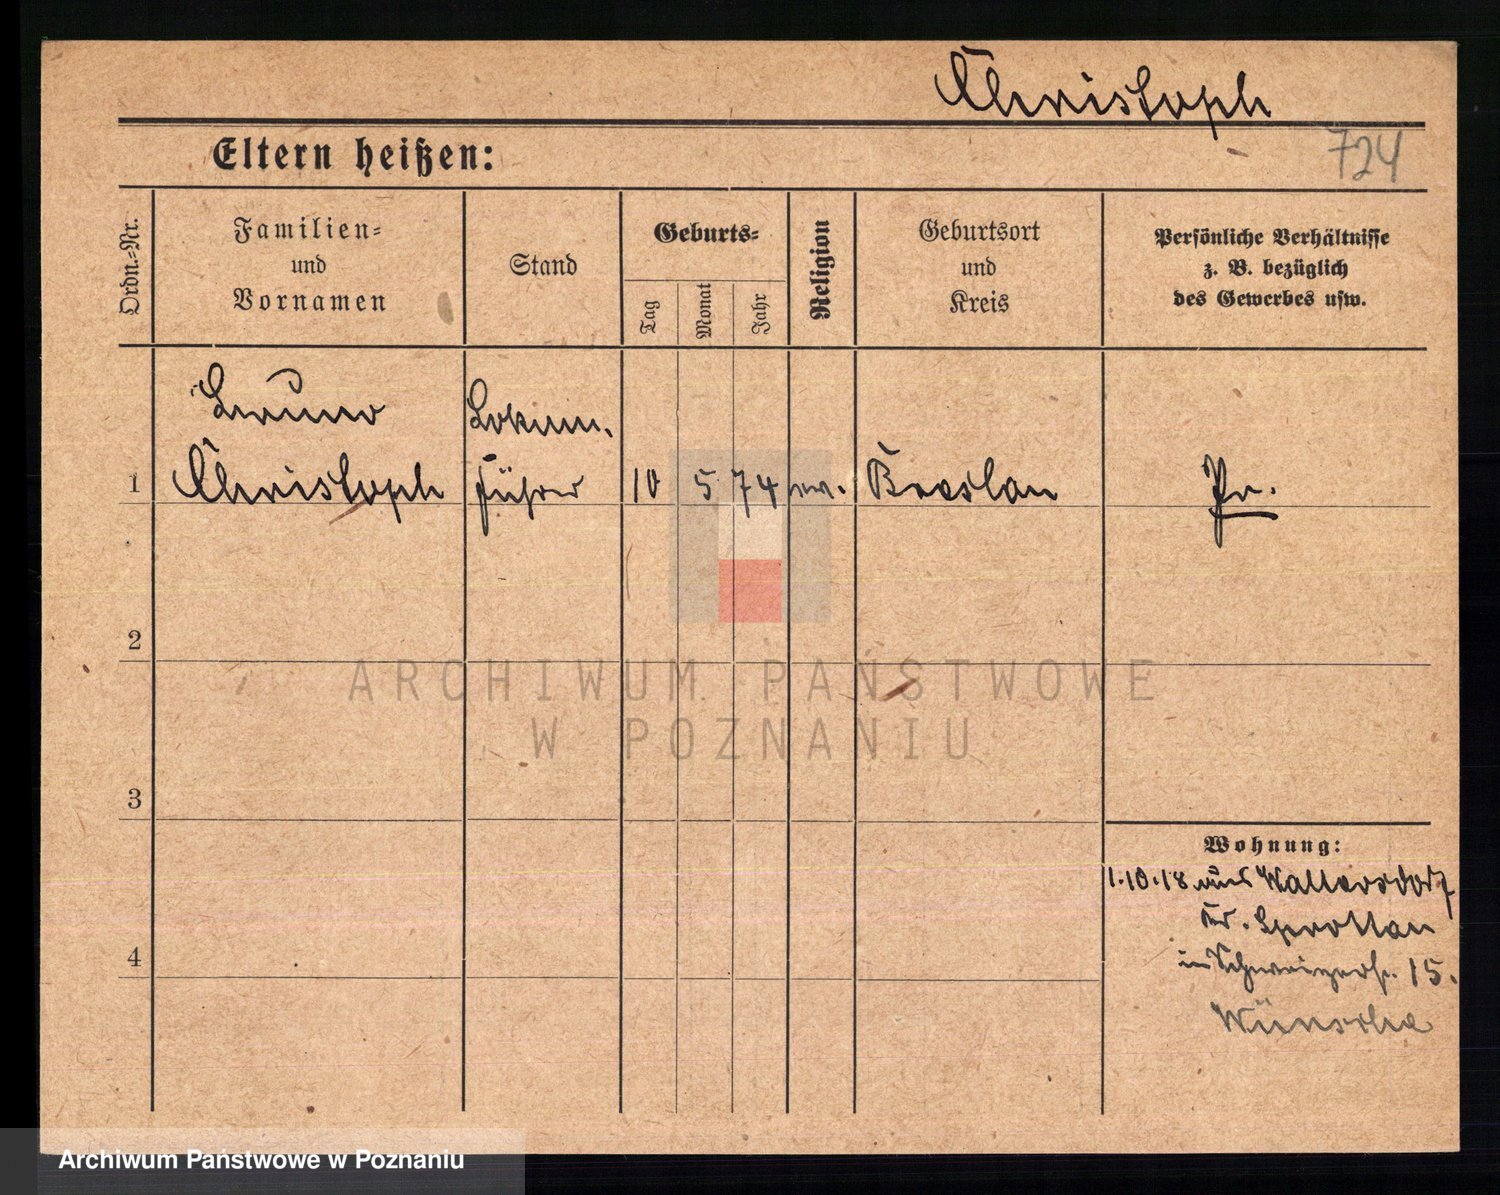 Christoph
724
Eltern heißen:
Ordn.-Nr.
Familien-
und
Vornamen
Stand
Geburts-
Tag
Monat
Jahr
Religion
Geburtsort
und
Kreis
Persönliche Verhältnisse
z. B. bezüglich
des Gewerbes usw.
Bruno Lokom.
1 Christoph führer 10 5 74 ev. Breslau Pr.
2
3
4
Wohnung:
1.10.18 aus Waltersdorf
Kr. Sprottau
in 15.
Wünsche
ARCHIWUM PAŃSTWOWE
W POZNANIU
Archiwum Państwowe w Poznaniu